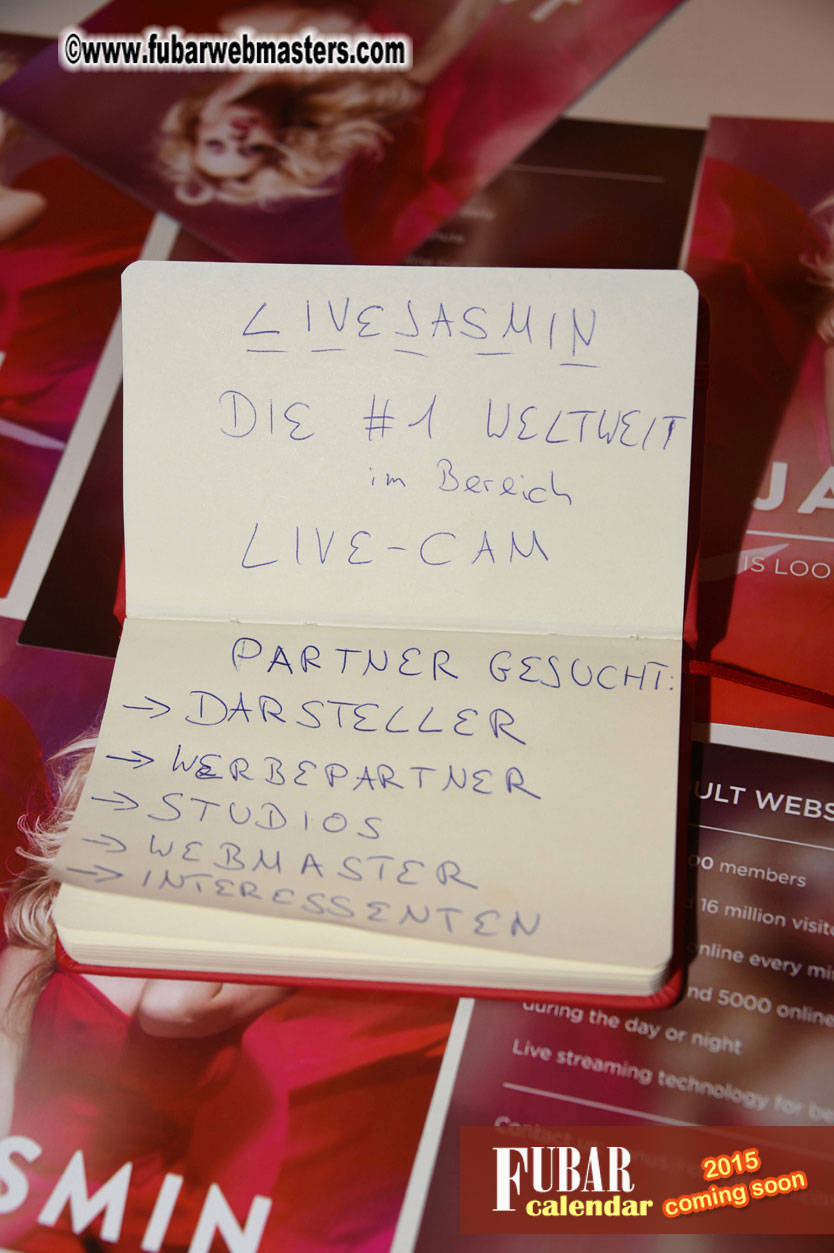 ©www.fubarwebmasters.com
LIVEJASMIN
DIE #1 WELTWEIT
im Bereich
LIVE-CAM
PARTNER GESUCHT:
→ DARSTELLER
→ WERBEPARTNER
→ STUDIOS
→ WEBMASTER
→ INTERESSENTEN
JA
IS LOO
ULT WEBS
00 members
16 million visito
nline every mi
nd 5000 online
during the day or night
Live streaming technology for be
SMIN
FUBAR
calendar
2015
coming soon